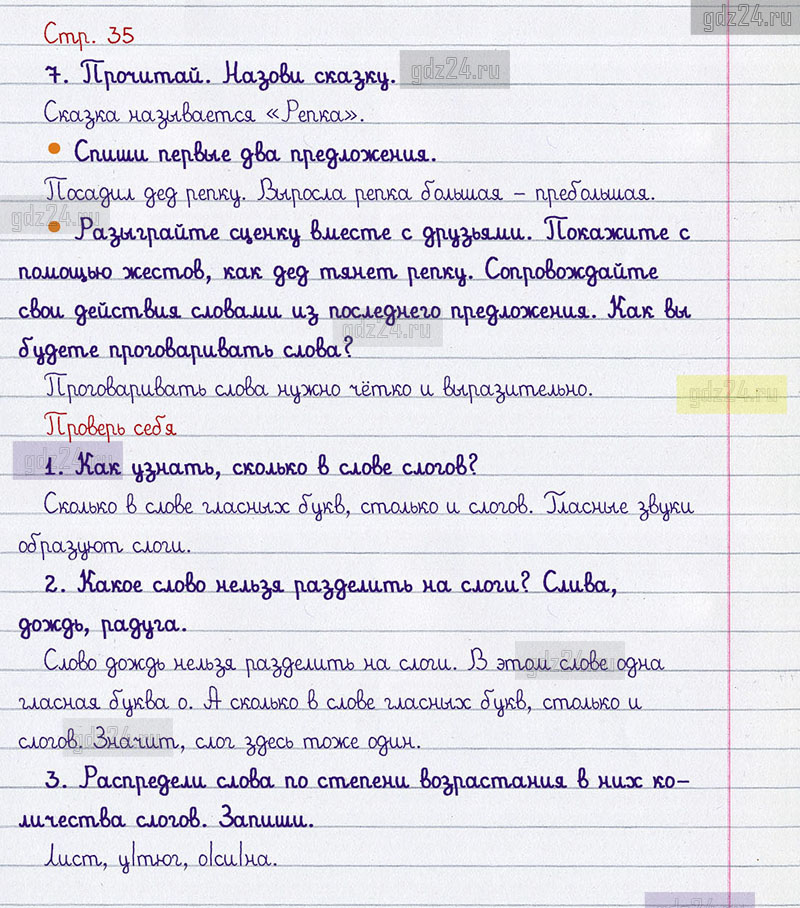 gdz24.ru
Стр. 35
7. Прочитай. Назови сказку.
gdz24.ru
Сказка называется «Репка».
• Спиши первые два предложения.
Посадил дед репку. Выросла репка большая – пребольшая.
gdz24.ru
• Разыграйте сценку вместе с друзьями. Покажите с
помощью жестов, как дед тянет репку. Сопровождайте
свои действия словами из последнего предложения. Как вы
gdz24.ru
будете проговаривать слова?
Проговаривать слова нужно чётко и выразительно.
gdz24.ru
Проверь себя
gdz24.ru
1. Как узнать, сколько в слове слогов?
Сколько в слове гласных букв, столько и слогов. Гласные звуки
образуют слоги.
2. Какое слово нельзя разделить на слоги? Слива,
дождь, радуга.
Слово дождь нельзя разделить на слоги. В этом слове одна
gdz24.ru
гласная буква о. А сколько в слове гласных букв, столько и
слогов. Значит, слог здесь тоже один.
gdz24.ru
3. Распредели слова по степени возрастания в них ко–
личества слогов. Запиши.
Лист, у|тюг, о|си|на.
gdz24.ru